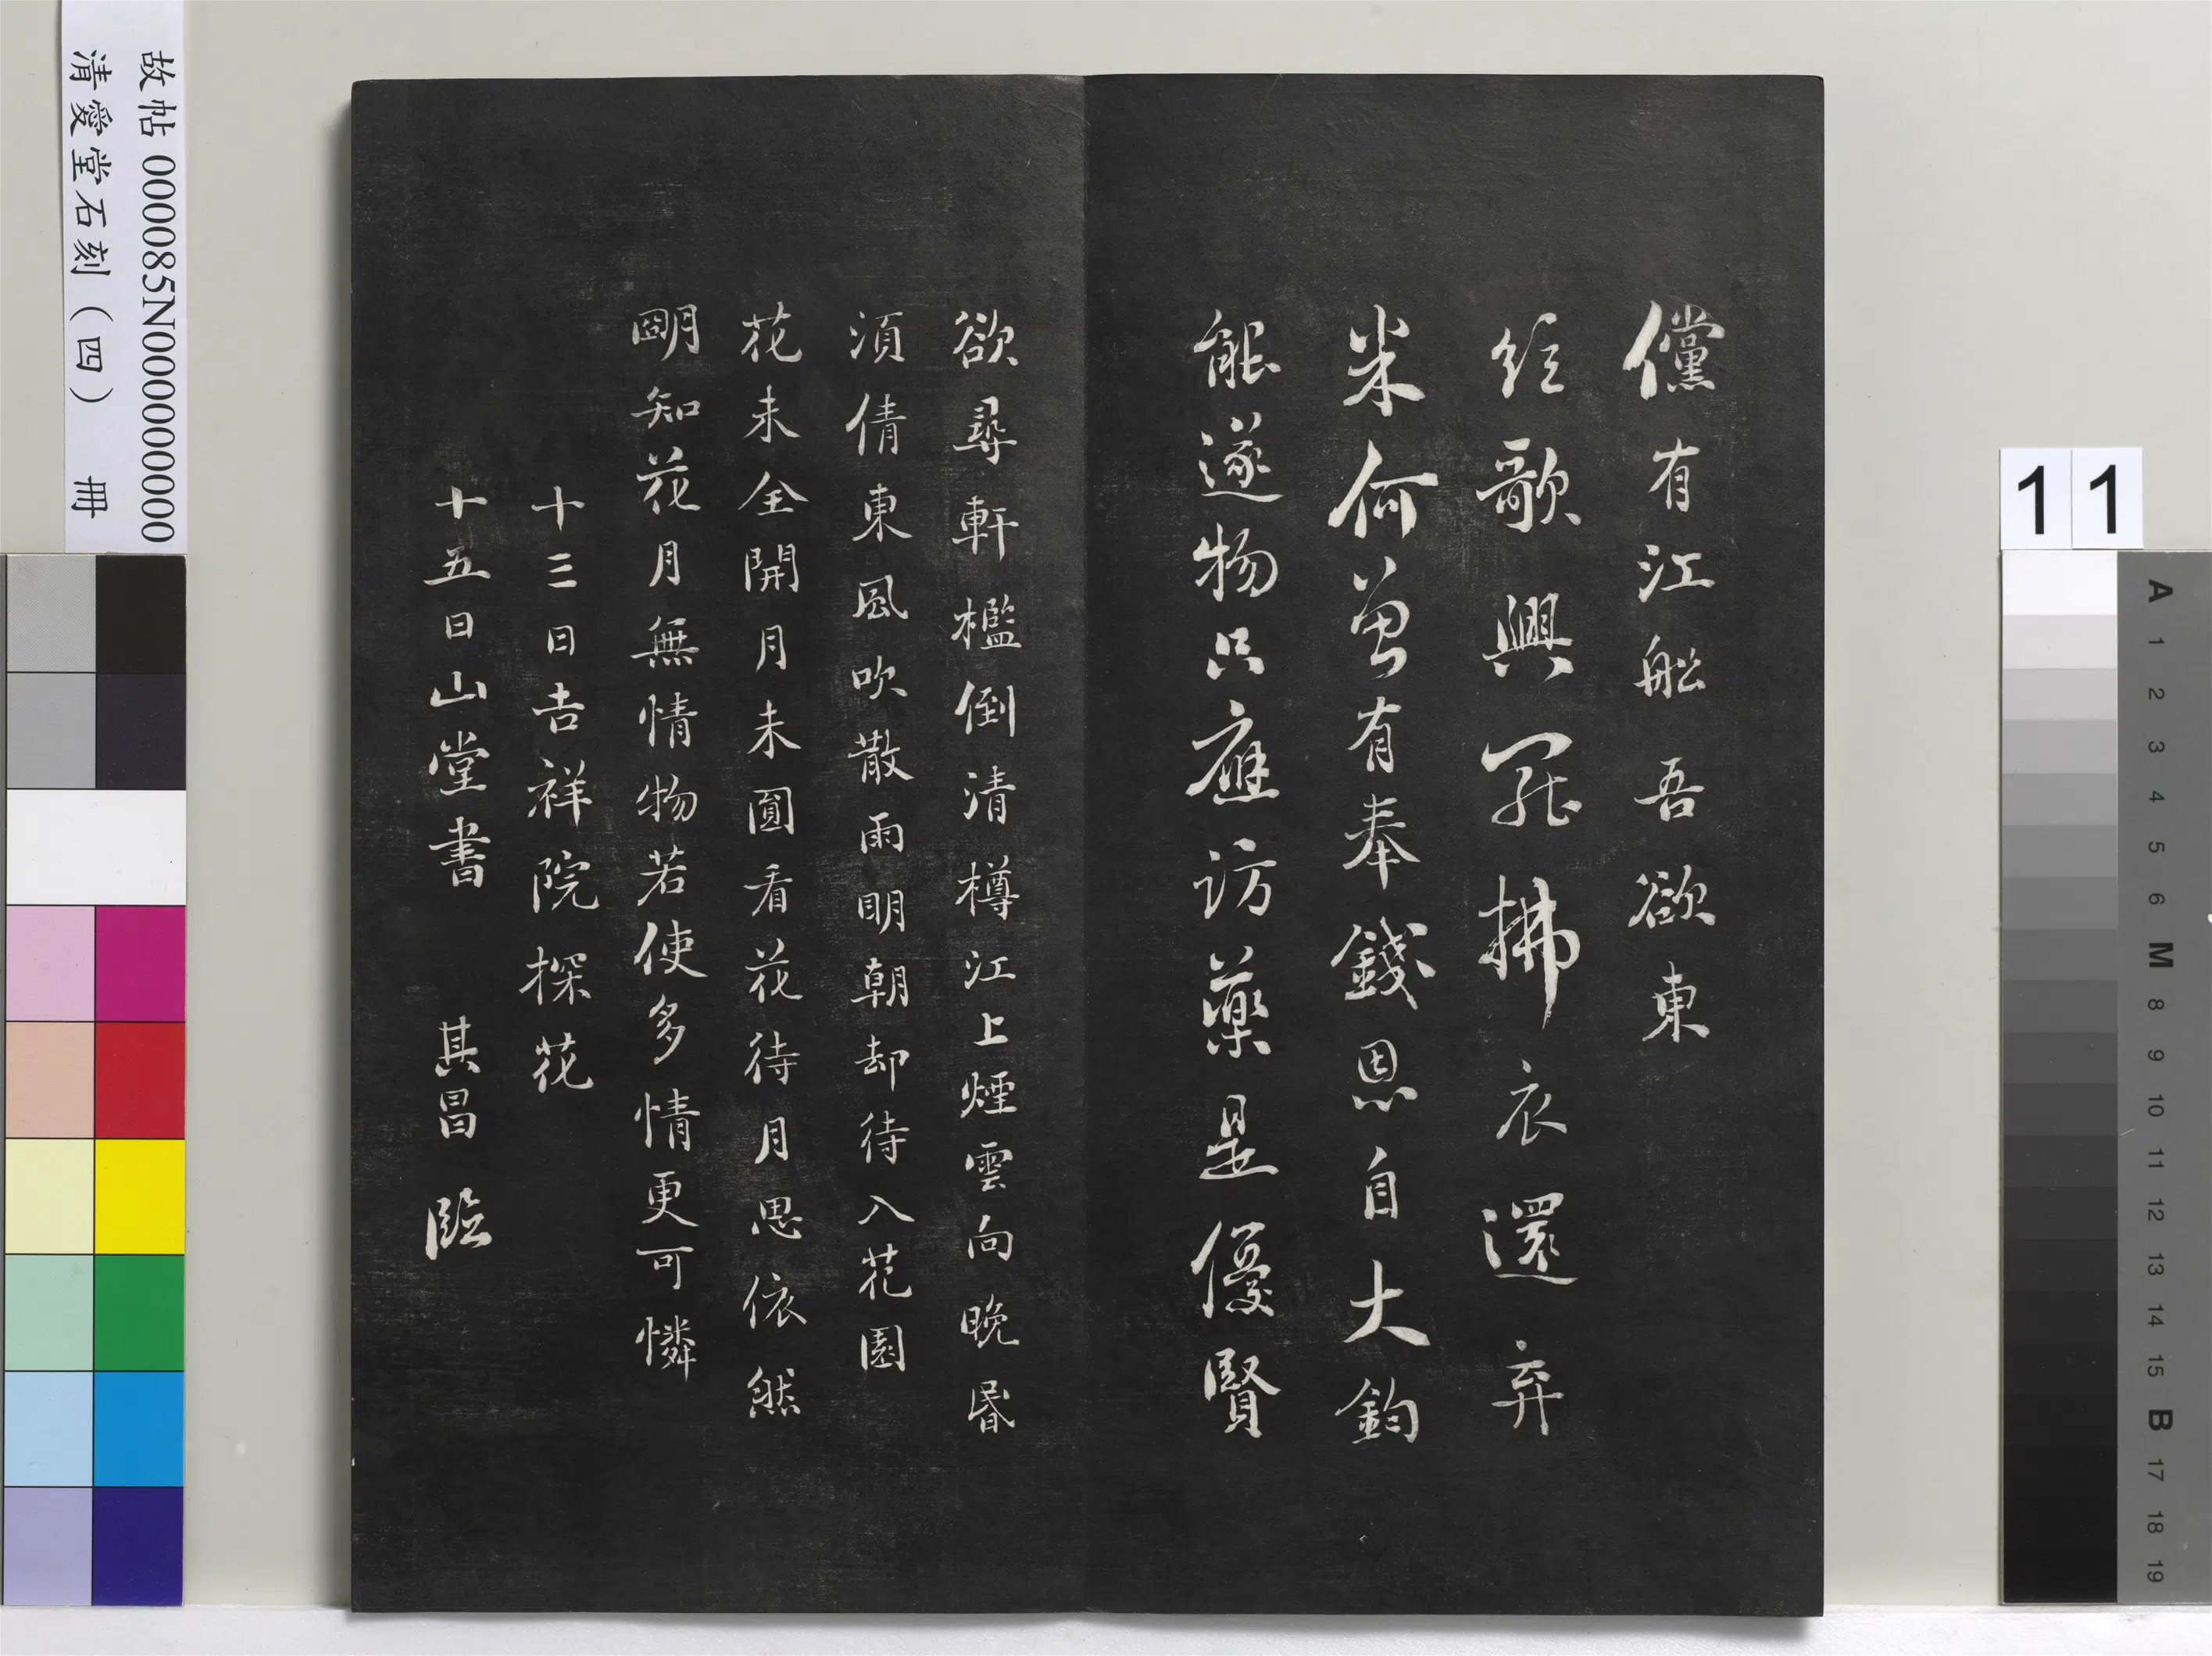 儻有江船吾欲東
絃歌興罷拂衣還弃
米何曾有奉錢恩自大鈞
能遂物只應訪藥是優賢
欲尋軒檻倒清樽江上煙雲向晚昏
須倩東風吹散雨明朝却待入花園
花未全開月未圓看花待月思依然
朙知花月無情物若使多情更可憐
十三日吉祥院探花
十五日山堂書 其昌臨
故帖 000085N000000000
清愛堂石刻(四) 冊
11
A
1
2
3
4
5
6
M
8
9
10
11
12
13
14
15
B
17
18
19